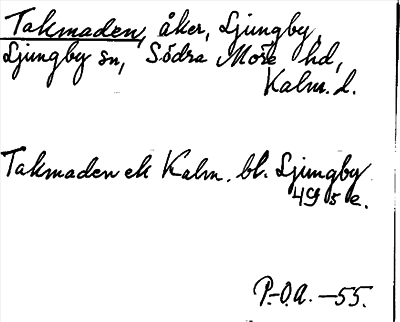 Takmaden, åker, Ljungby,
Ljungby sn, Södra Möre hd,
Kalm. l.
Takmaden ek Kalm. bl. Ljungby
4G 5 e.
P.-O.A. -55.